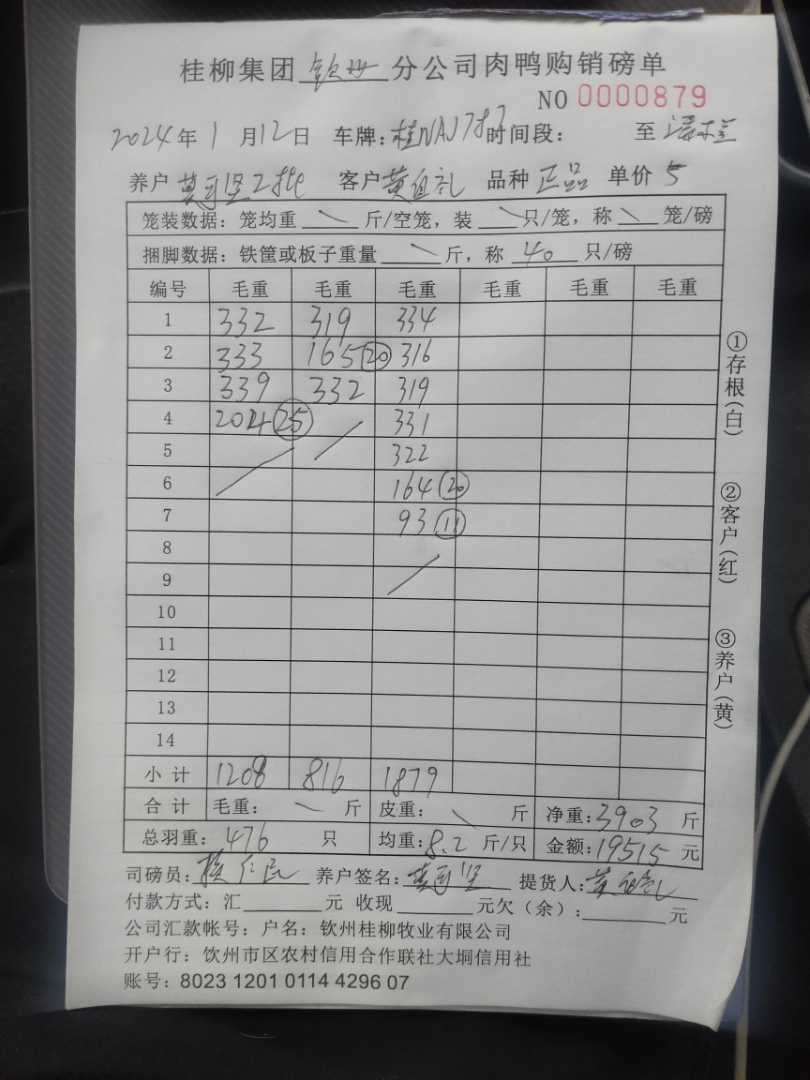 桂柳集团 钦州 分公司肉鸭购销磅单
NO 0000879
2024年1月12日 车牌:桂NAJ787 时间段: 至
养户 客户 黄 礼 品种 正品 单价 5
笼装数据: 笼均重 \ 斤/空笼, 装 \ 只/笼, 称 \ 笼/磅
捆脚数据: 铁筐或板子重量 \ 斤, 称 40 只/磅
编号 毛重 毛重 毛重 毛重 毛重 毛重
1 332 319 334
2 333 165(20) 316
3 339 332 319
4 204(25) / 331
5 / 322
6 164(20)
7 93(11)
8
9 /
10
11
12
13
14
小计 1208 816 1879
合计 毛重: \ 斤 皮重: \ 斤 净重:3903 斤
总羽重: 476 只 均重:8.2 斤/只 金额:19515 元
司磅员: 养户签名: 提货人:黄
付款方式: 汇 元 收现 元欠(余): 元
公司汇款帐号: 户名: 钦州桂柳牧业有限公司
开户行: 饮州市区农村信用合作联社大垌信用社
账号: 8023 1201 0114 4296 07
①存根(白)
②客户(红)
③养户(黄)